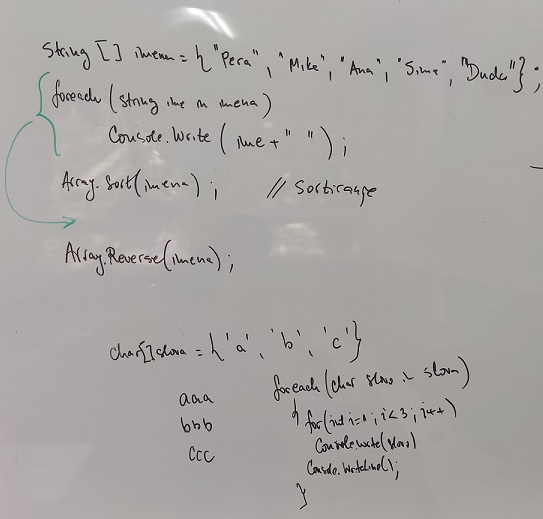 String [] imena = {"Pera", "Mika", "Ana", "Sima", "Duda"};
foreach (string ime in imena)
Console.Write (ime + " ");
Array.Sort(imena); // Sortiranje
Array.Reverse(imena);
char[] slova = {'a', 'b', 'c'}
foreach (char slovo in slova)
aaa
{ for(int i=1; i<3; i++)
bbb
Console.Write(slovo)
ccc
Console.WriteLine();
}